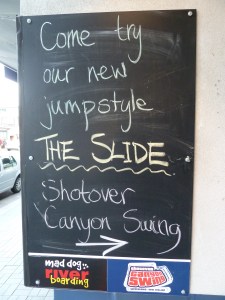 Come try
our new
jumpstyle
THE SLIDE
Shotover
Canyon Swing
mad dog
river
boarding
canyon
swing